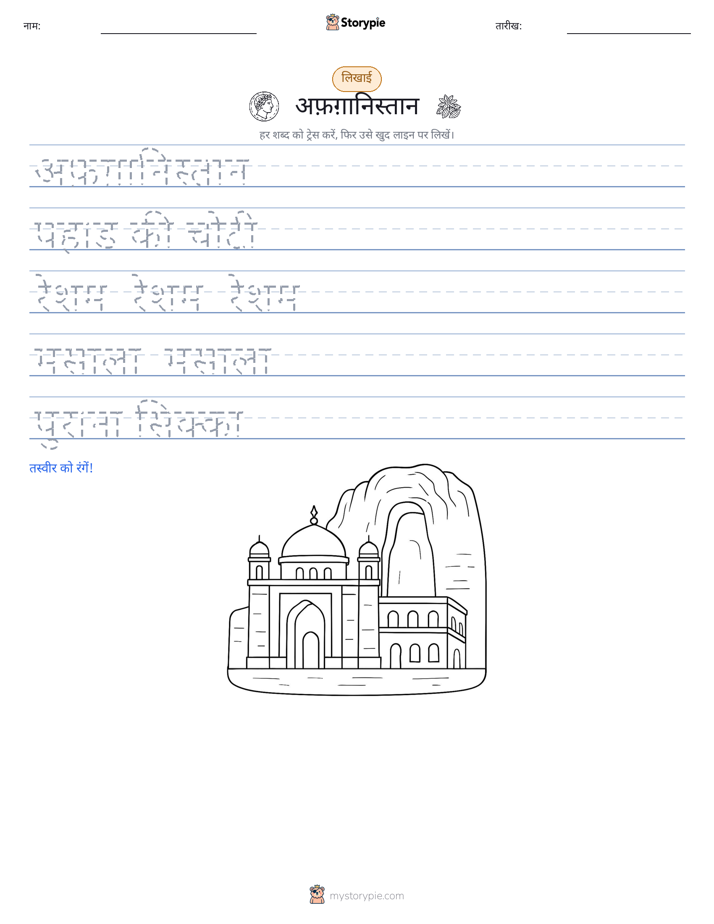 नाम:
Storypie
तारीख:
लिखाई
अफ़ग़ानिस्तान
हर शब्द को ट्रेस करें, फिर उसे खुद लाइन पर लिखें।
अफ़ग़ानिस्तान
पहाड़ की चोटी
रेशम रेशम रेशम
मसाला मसाला
पुराना सिक्का
तस्वीर को रंगें!
mystorypie.com